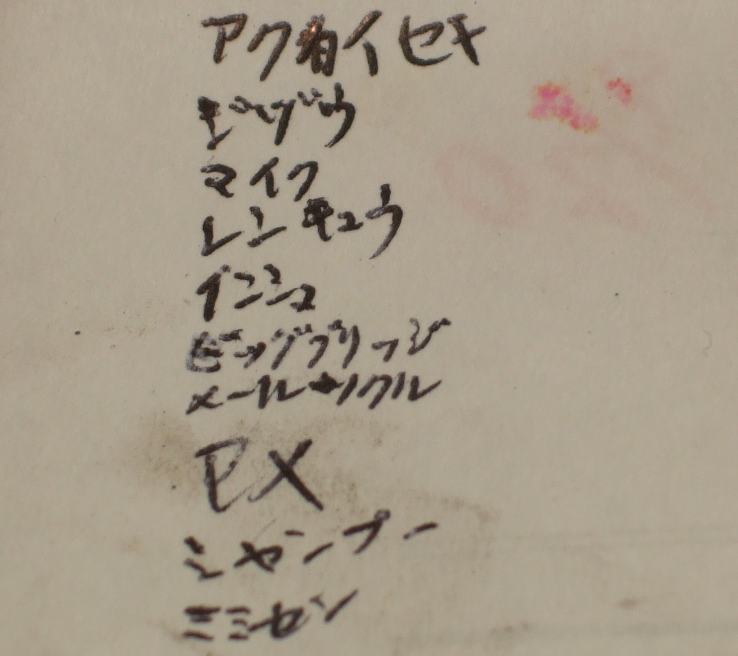 アクタイセキ
ジゾウ
マイク
レンキュウ
インショ
ビッグブリッジ
メールサークル
PX
シャンプー
ミミセン